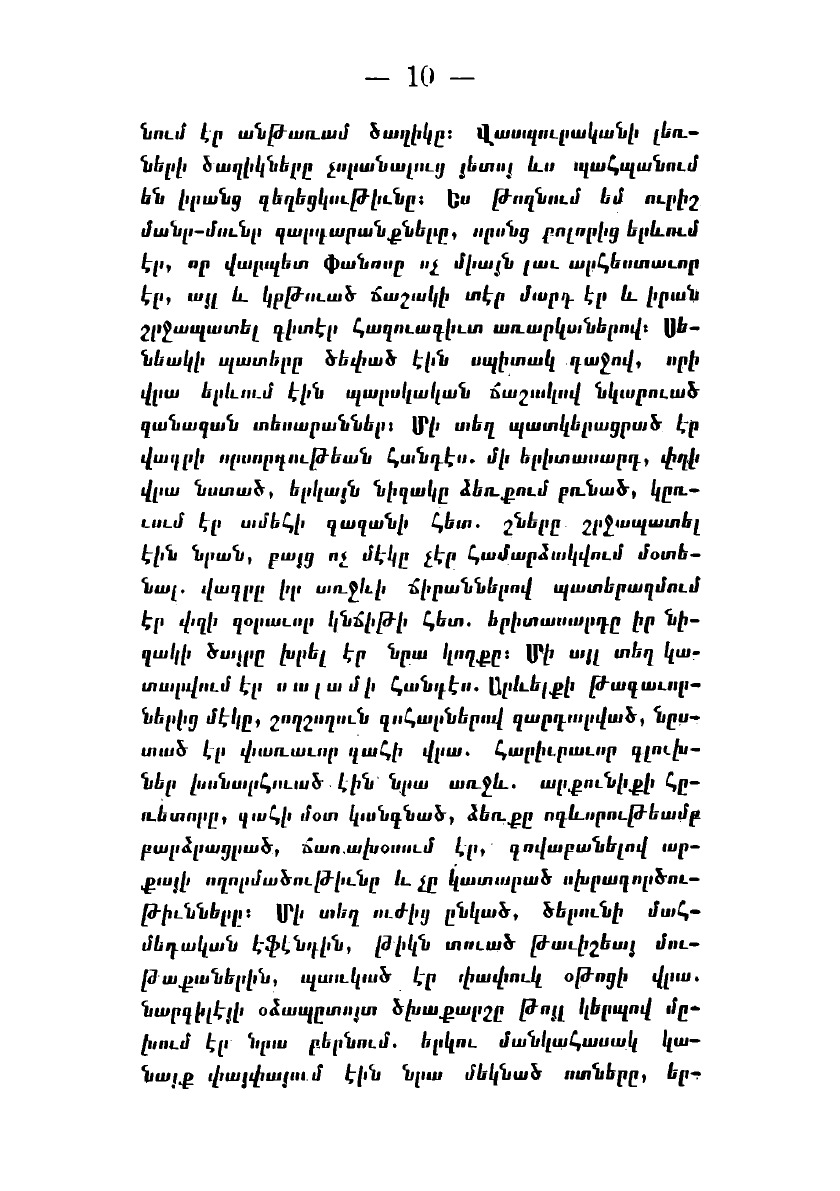 — 10 —
նում էր անթառամ ծաղիկը։ Վասպուրականի լեռ-
ների ծաղիկները չորանալուց յետոյ ևս պահպանում
են իրանց գեղեցկութիւնը։ Ես թողնում եմ ուրիշ
մանր-մունր զարդարանքները, որոնց բոլորից երևում
էր, որ վարպետ Փանոսը ոչ միայն լաւ արհեստաւոր
էր, այլ և կրթուած ճաշակի տէր մարդ էր և իրան
շրջապատել գիտէր հազուագիւտ առարկաներով։ Սե-
նեակի պատերը ծեփած էին սպիտակ գաջով, որի
վրա երևում էին պարսկական ճաշակով նկարուած
զանազան տեսարաններ։ Մի տեղ պատկերացրած էր
վագրի որսորդութեան հանդէս. մի երիտասարդ, փղի
վրա նստած, երկայն նիզակը ձեռքում բռնած, կըռ-
ւում էր ամեհի գազանի հետ. շները շրջապատել
էին նրան, բայց ոչ մէկը չէր համարձակվում մօտե-
նալ. վագրը իր առջևի ճիրաններով պատերազմում
էր փղի զօրաւոր կնճիթի հետ. երիտասարդը իր նի-
զակի ծայրը խրել էր նրա կողքը։ Մի այլ տեղ կա-
տարվում էր սալամի հանդէս. Արևելքի թագաւոր-
ներից մէկը, շողշողուն գոհարներով զարդարված, նըս-
տած էր փառաւոր գահի վրա. հարիւրաւոր գլուխ-
ներ խոնարհուած էին նրա առջև. արքունիքի հը-
ռետորը, գահի մօտ կանգնած, ձեռքը ոգևորութեամբ
բարձրացրած, ճառախօսում էր, գովաբանելով ար-
քայի ողորմածութիւնը և չը կատարած սխրագործու-
թիւնները։ Մի տեղ ուժից ընկած, ծերունի մահ-
մեդական էֆէնդին, թիկն տուած թաւիշեայ մու-
թաքաներին, պառկած էր փափուկ օթոցի վրա.
նարգիլէյի օձապըտոյտ ծխաքարշը թոյլ կերպով մը-
խում էր նրա բերնում. երկու մանկահասակ կա-
նայք փայփայում էին նրա մեկնած ոտները, եր-